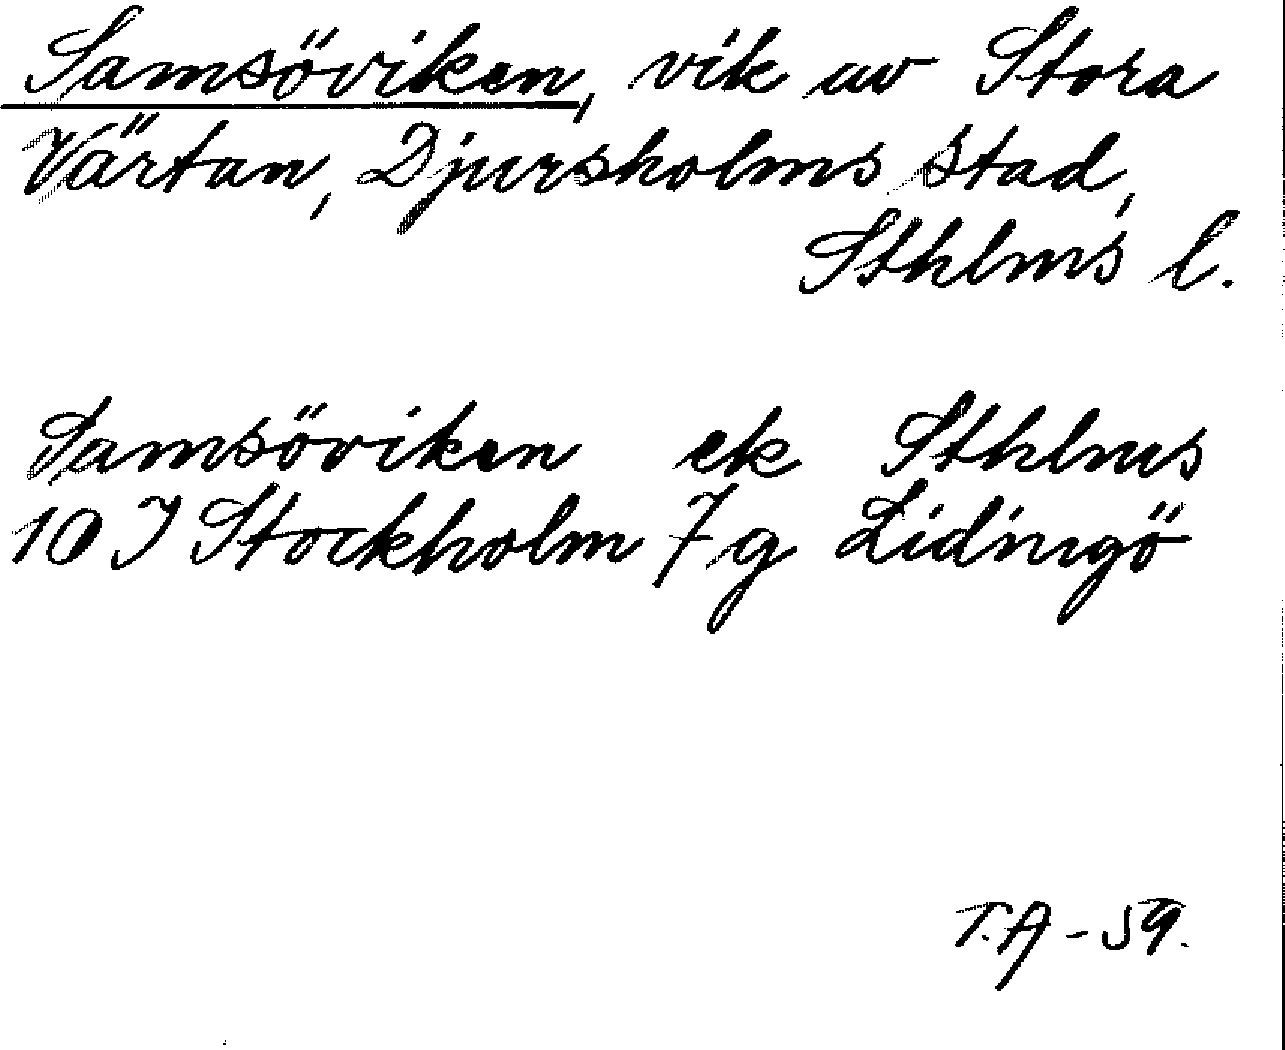 Samsöviken, vik av Stora
Värtan, Djursholms stad,
Sthlms l.
Samsöviken ek Sthlms
10 I Stockholm 7 g Lidingö
T.A - 59.